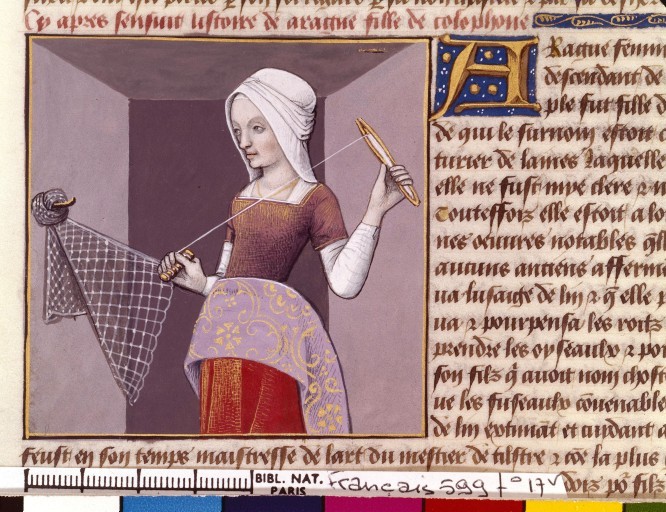 Cy apres sensuit listoire de aragne fille de colophone
Aragne femm
descendant de
ple fut fille d
de qui le surnom estoit
turier de laines Laquelle
elle ne fust mye clere
Touteffois elle estoit a lo
nes oeuures notables qlle
aucuns anciens afferm
ua lusaige de lin et q elle p
ua et pourpensa les roitz
prendre les oyseaulx et po
son filz q auoit nom clost
ue les fuseaulx conuenable
de lin extimat et cuidant a
feust en son temps maistresse de lart du mestier de tistre et coe la plus
doiz po filz
BIBL. NAT.
PARIS
Français 599 fo 17v